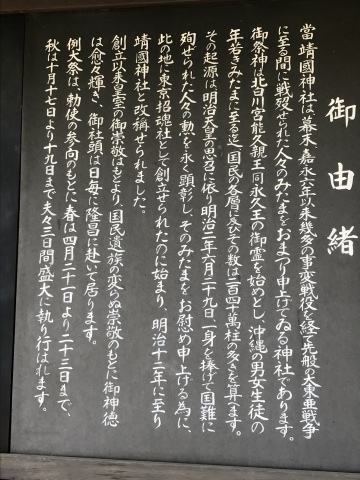 御由緒
當靖國神社は、幕末嘉永六年以来幾多の事変戦役を経て先般の大東亜戦争
に至る間に戦歿せられた人々のみたまをおまつり申上げてゐる神社であります。
御祭神は北白川宮能久親王同永久王の御霊を始めとし、沖縄の男女生徒の
年若きみたまに至る迄国民が各層に及びその数は二百四十萬柱の多きを算へます。
その起源は明治天皇の思召に依り明治二年六月二十九日一身を捧げて国難に
殉ぜられた人々の勲を永く顕彰し、そのみたまをお慰め申上げる為に、
此の地に東京招魂社として創立せられたのに始まり、明治十二年に至り
靖國神社と改稱せられました。
創立以来皇室の御崇敬はもとより、国民遺族の変らぬ崇敬のもとに御神徳
は愈々輝き、御社頭は日毎に隆昌に赴いて居ります。
例大祭は、勅使の参向のもとに春は四月二十一日より二十三日まで、
秋は十月十七日より十九日まで夫々三日間盛大に執り行はれます。